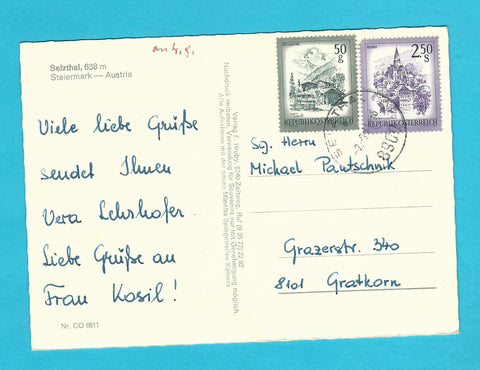 Selzthal, 638 m
Steiermark — Austria
Viele liebe Grüße
sendet Ihnen
Vera Lehrhofer
Liebe Grüße an
Frau Kosil!
Nr. CO 6811
Verlag F. Hruby, 8740 Zeltweg, Ruf (0 35 77) 22 92
Nachdruck verboten. Verwendung für Souvenirs nur mit Genehmigung möglich.
Alle Aufnahmen mit der neuen Mamiya Spiegelreflex Kamera
50
g
REPUBLIK ÖSTERREICH
2.50
S
REPUBLIK ÖSTERREICH
SELZTHAL
8900
Sg. Herrn
Michael Pautschnik
Grazerstr. 340
8101 Gratkorn